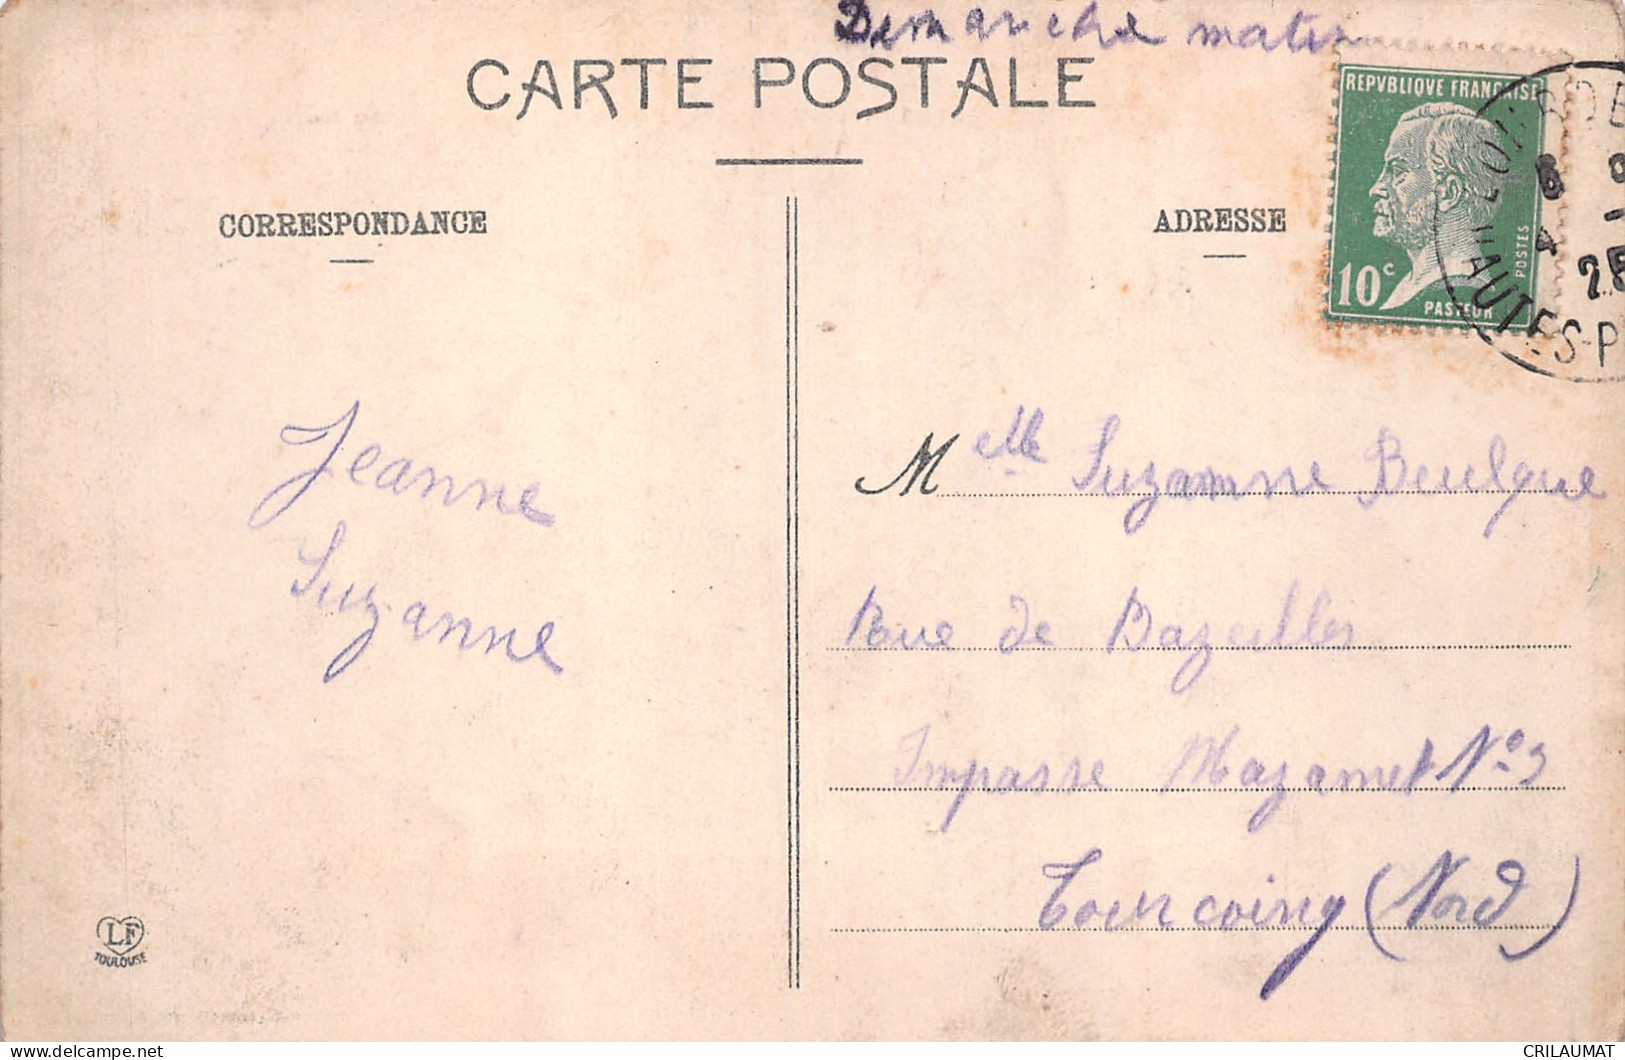 Dimanche matin
CARTE POSTALE
CORRESPONDANCE
ADRESSE
REPVBLIQVE FRANÇAISE
10c
POSTES
PASTEUR
25
HAUTES-P
Jeanne
Suzanne
Melle Suzanne Beulque
Rue de Bazeilles
Impasse Mazamet No 3
Tourcoing (Nord)
LF
TOULOUSE
delcampe.net
CRILAUMAT